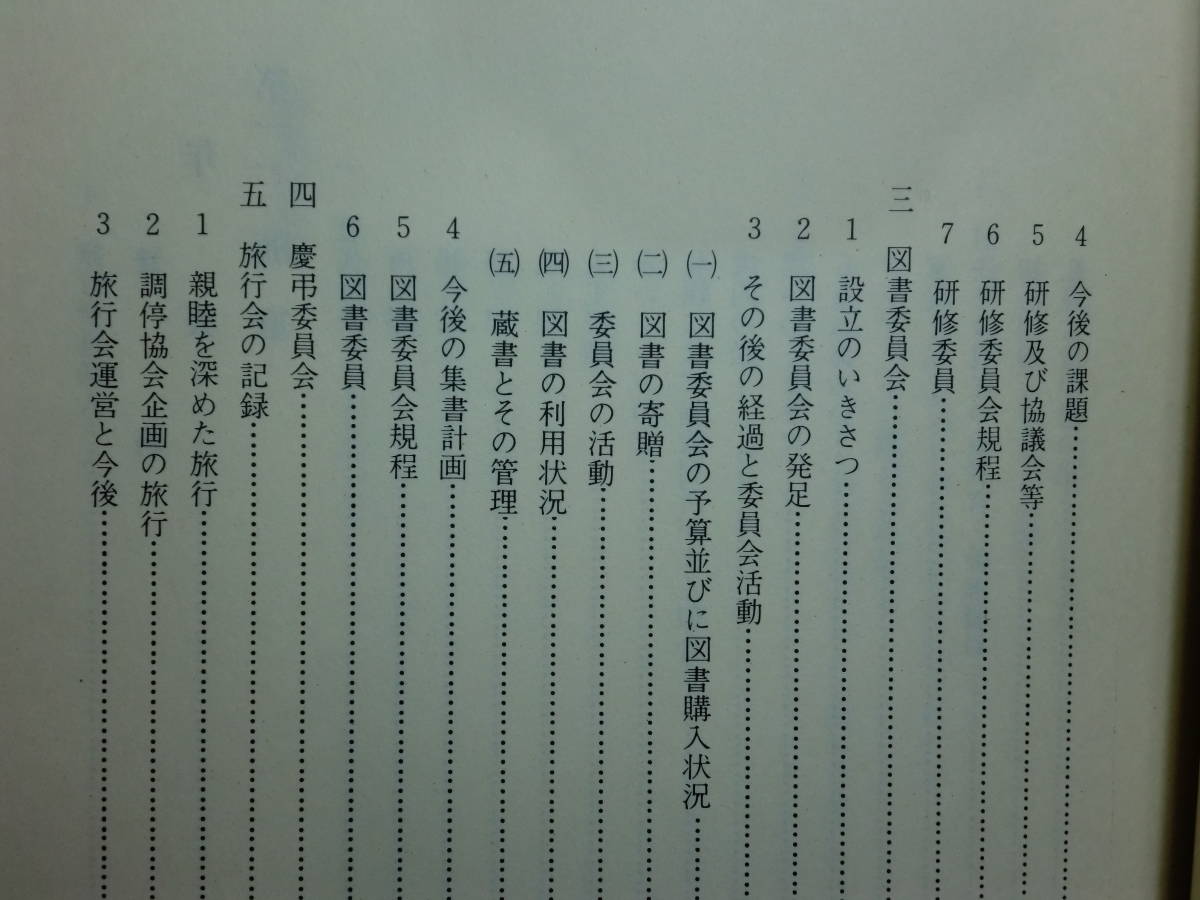 4 今後の課題……………………
5 研修及び協議会等……………………
6 研修委員会規程……………………
7 研修委員……………………
三 図書委員会……………………
1 設立のいきさつ……………………
2 図書委員会の発足……………………
3 その後の経過と委員会活動……………………
㈠ 図書委員会の予算並びに図書購入状況……
㈡ 図書の寄贈……………………
㈢ 委員会の活動……………………
㈣ 図書の利用状況……………………
㈤ 蔵書とその管理……………………
4 今後の集書計画……………………
5 図書委員会規程……………………
6 図書委員……………………
四 慶弔委員会……………………
五 旅行会の記録……………………
1 親睦を深めた旅行……………………
2 調停協会企画の旅行……………………
3 旅行会運営と今後……………………